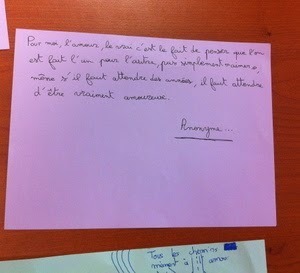 Pour moi, l'amour, le vrai c'est le fait de penser que l'on
est fait l'un pour l'autre, pas simplement m'aimer,
même s'il faut attendre des années, il faut attendre
d'être vraiment amoureuse.
Anonyme...
Tous les
moment à